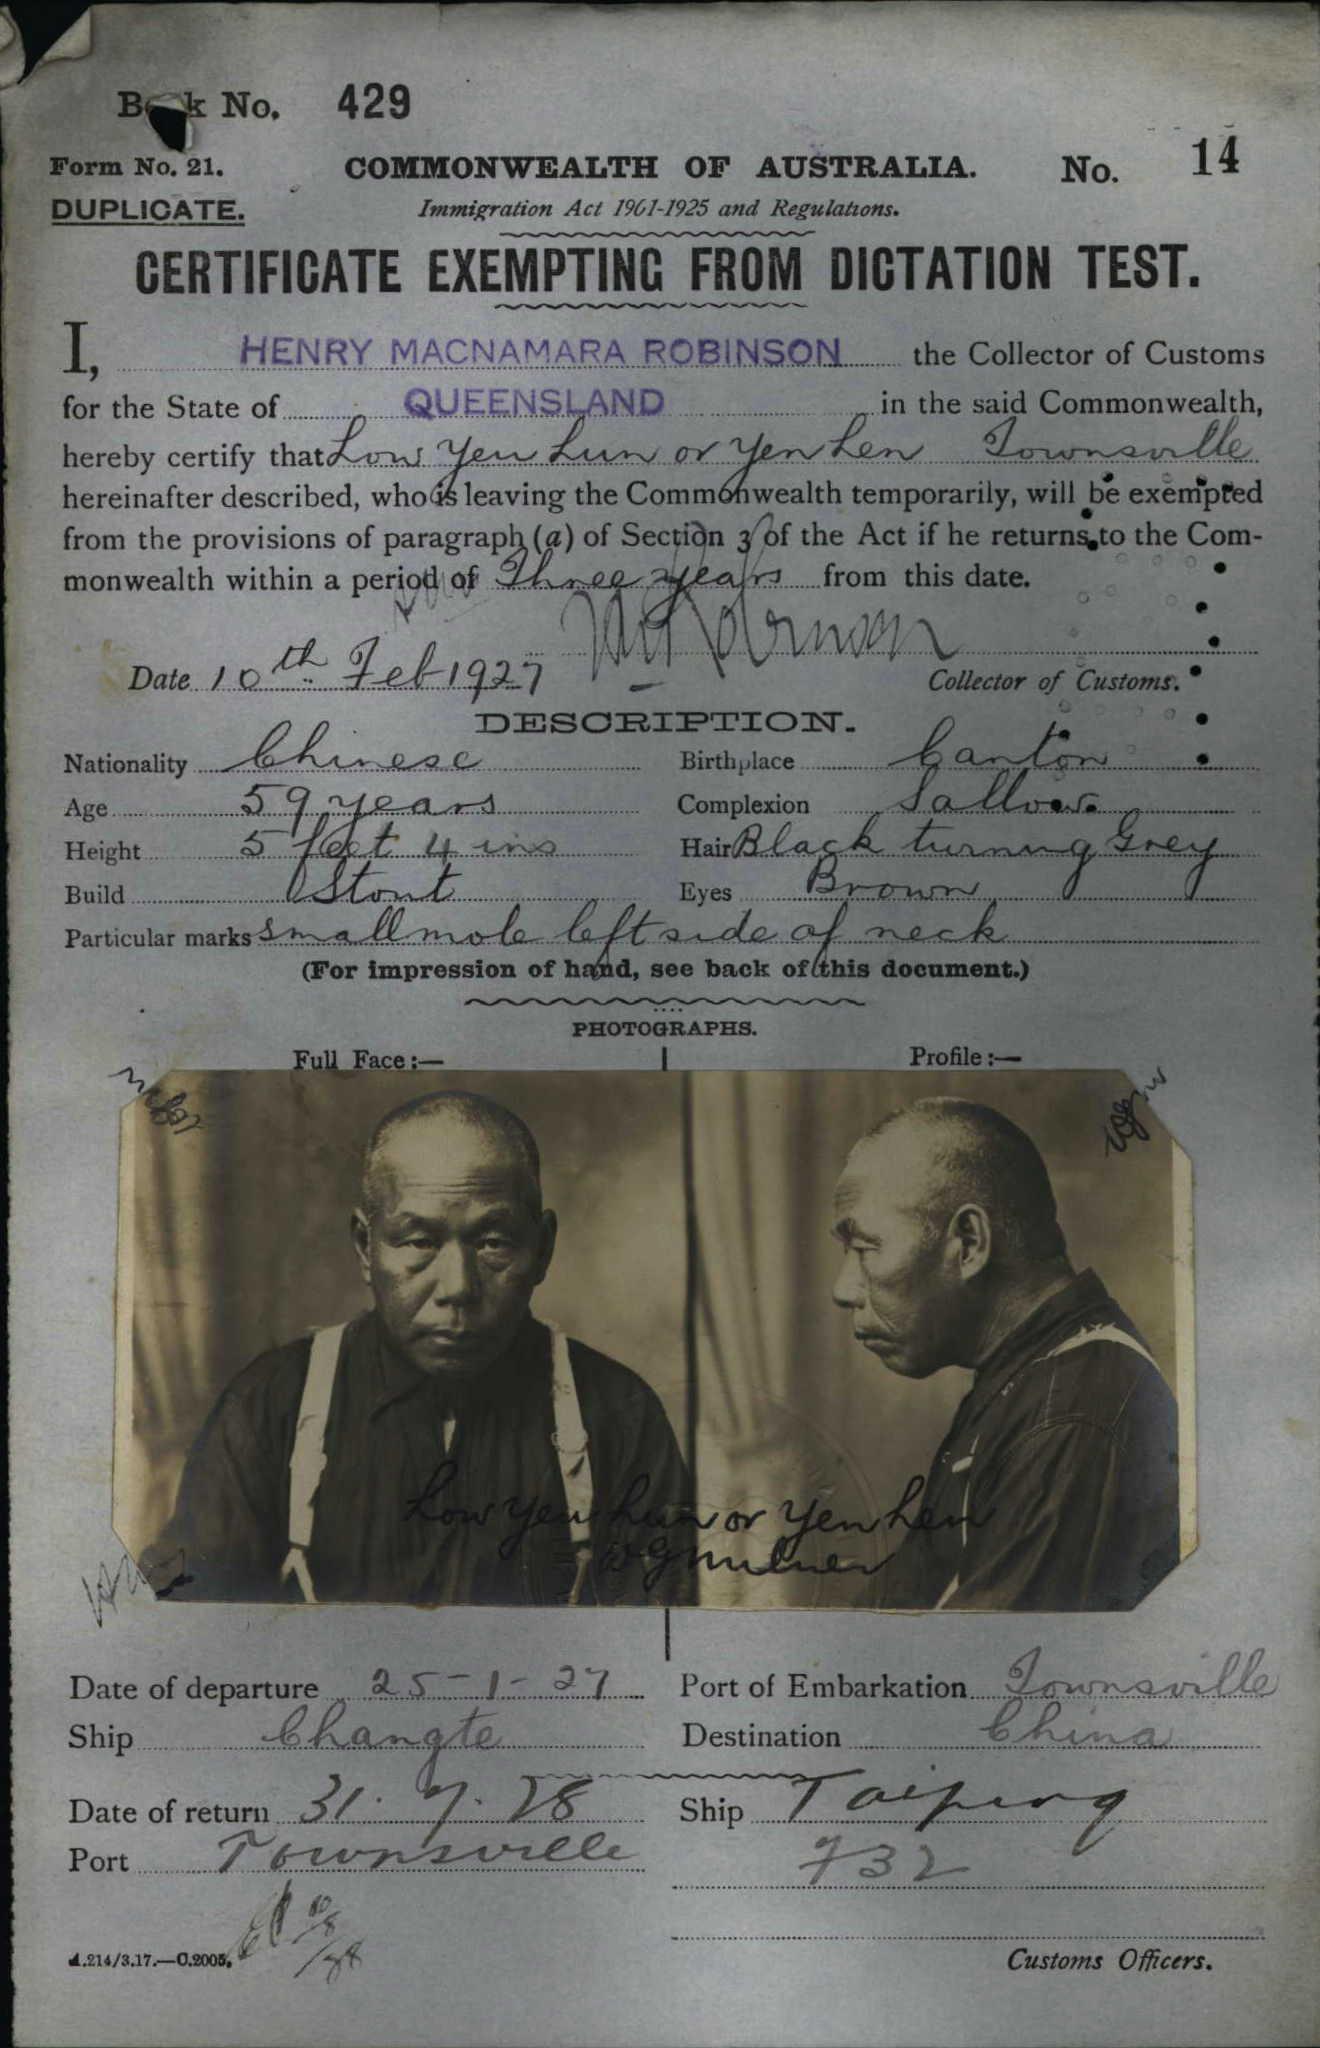 Book No. 429
Form No. 21. COMMONWEALTH OF AUSTRALIA. No. 14
DUPLICATE. Immigration Act 1901-1925 and Regulations.
CERTIFICATE EXEMPTING FROM DICTATION TEST.
I, HENRY MACNAMARA ROBINSON the Collector of Customs
for the State of QUEENSLAND in the said Commonwealth,
hereby certify that Low Yen Lun or Yen Len Townsville
hereinafter described, who is leaving the Commonwealth temporarily, will be exempted
from the provisions of paragraph (a) of Section 3 of the Act if he returns to the Com-
monwealth within a period of Three years from this date.
Date 10th Feb 1927 Collector of Customs.
DESCRIPTION.
Nationality Chinese Birthplace Canton
Age 59 years Complexion Sallow
Height 5 feet 4 ins Hair Black turning Grey
Build Stout Eyes Brown
Particular marks small mole left side of neck
(For impression of hand, see back of this document.)
PHOTOGRAPHS.
Full Face:— Profile:—
Low Yen Lun or Yen Len
Date of departure 25-1-27 Port of Embarkation Townsville
Ship Changte Destination China
Date of return 31.7.28 Ship Taiping
Port Townsville 732
A.214/3.17.—C.2005. Customs Officers.